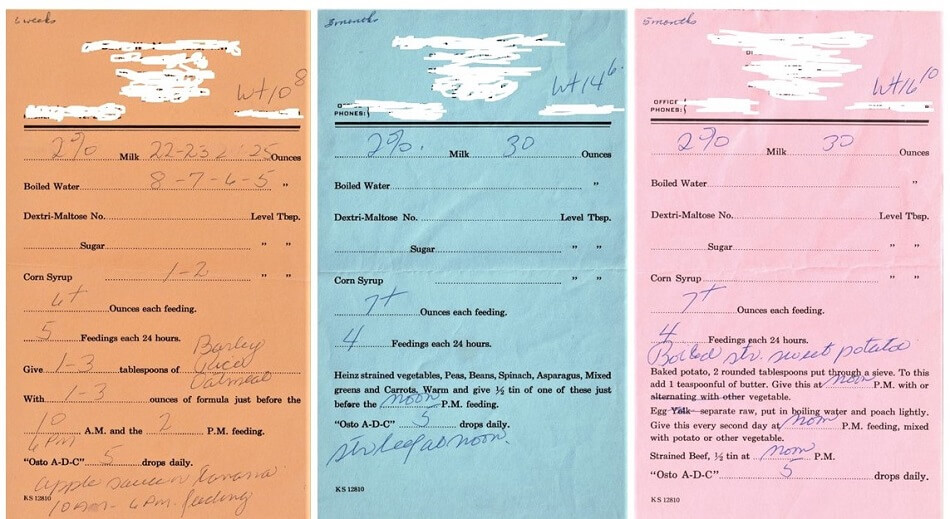 6 weeks
Wt 10 8
2% Milk 22-23 25 Ounces
Boiled Water 8-7-6-5 "
Dextri-Maltose No. Level Tbsp.
Sugar " "
Corn Syrup 1-2 " "
6+ Ounces each feeding.
5 Feedings each 24 hours.
Barley
Rice
Oatmeal
Give 1-3 tablespoons of
With 1-3 ounces of formula just before the
10 A.M. and the 2 P.M. feeding.
6 PM
"Osto A-D-C" 5 drops daily.
apple sauce banana
10 AM - 6 PM. feeding
KS 12810
3 months
Wt 14 6
PHONES:
2%. Milk 30 Ounces
Boiled Water "
Dextri-Maltose No. Level Tbsp.
Sugar " "
Corn Syrup " "
7+ Ounces each feeding.
4 Feedings each 24 hours.
Heinz strained vegetables, Peas, Beans, Spinach, Asparagus, Mixed
greens and Carrots. Warm and give ½ tin of one of these just
before the noon P.M. feeding.
"Osto A-D-C" 5 drops daily.
str beef at noon.
KS 12810
5 months
Wt 16 10
OFFICE
PHONES:
2% Milk 30 Ounces
Boiled Water "
Dextri-Maltose No. Level Tbsp.
Sugar " "
Corn Syrup " "
7+ Ounces each feeding.
4 Feedings each 24 hours.
Boiled str. sweet potato
Baked potato, 2 rounded tablespoons put through a sieve. To this
add 1 teaspoonful of butter. Give this at noon P.M. with or
alternating with other vegetable.
Egg Yolk separate raw, put in boiling water and poach lightly.
Give this every second day at noon P.M. feeding, mixed
with potato or other vegetable.
Strained Beef, ½ tin at noon P.M.
"Osto A-D-C" 5 drops daily.
KS 12810